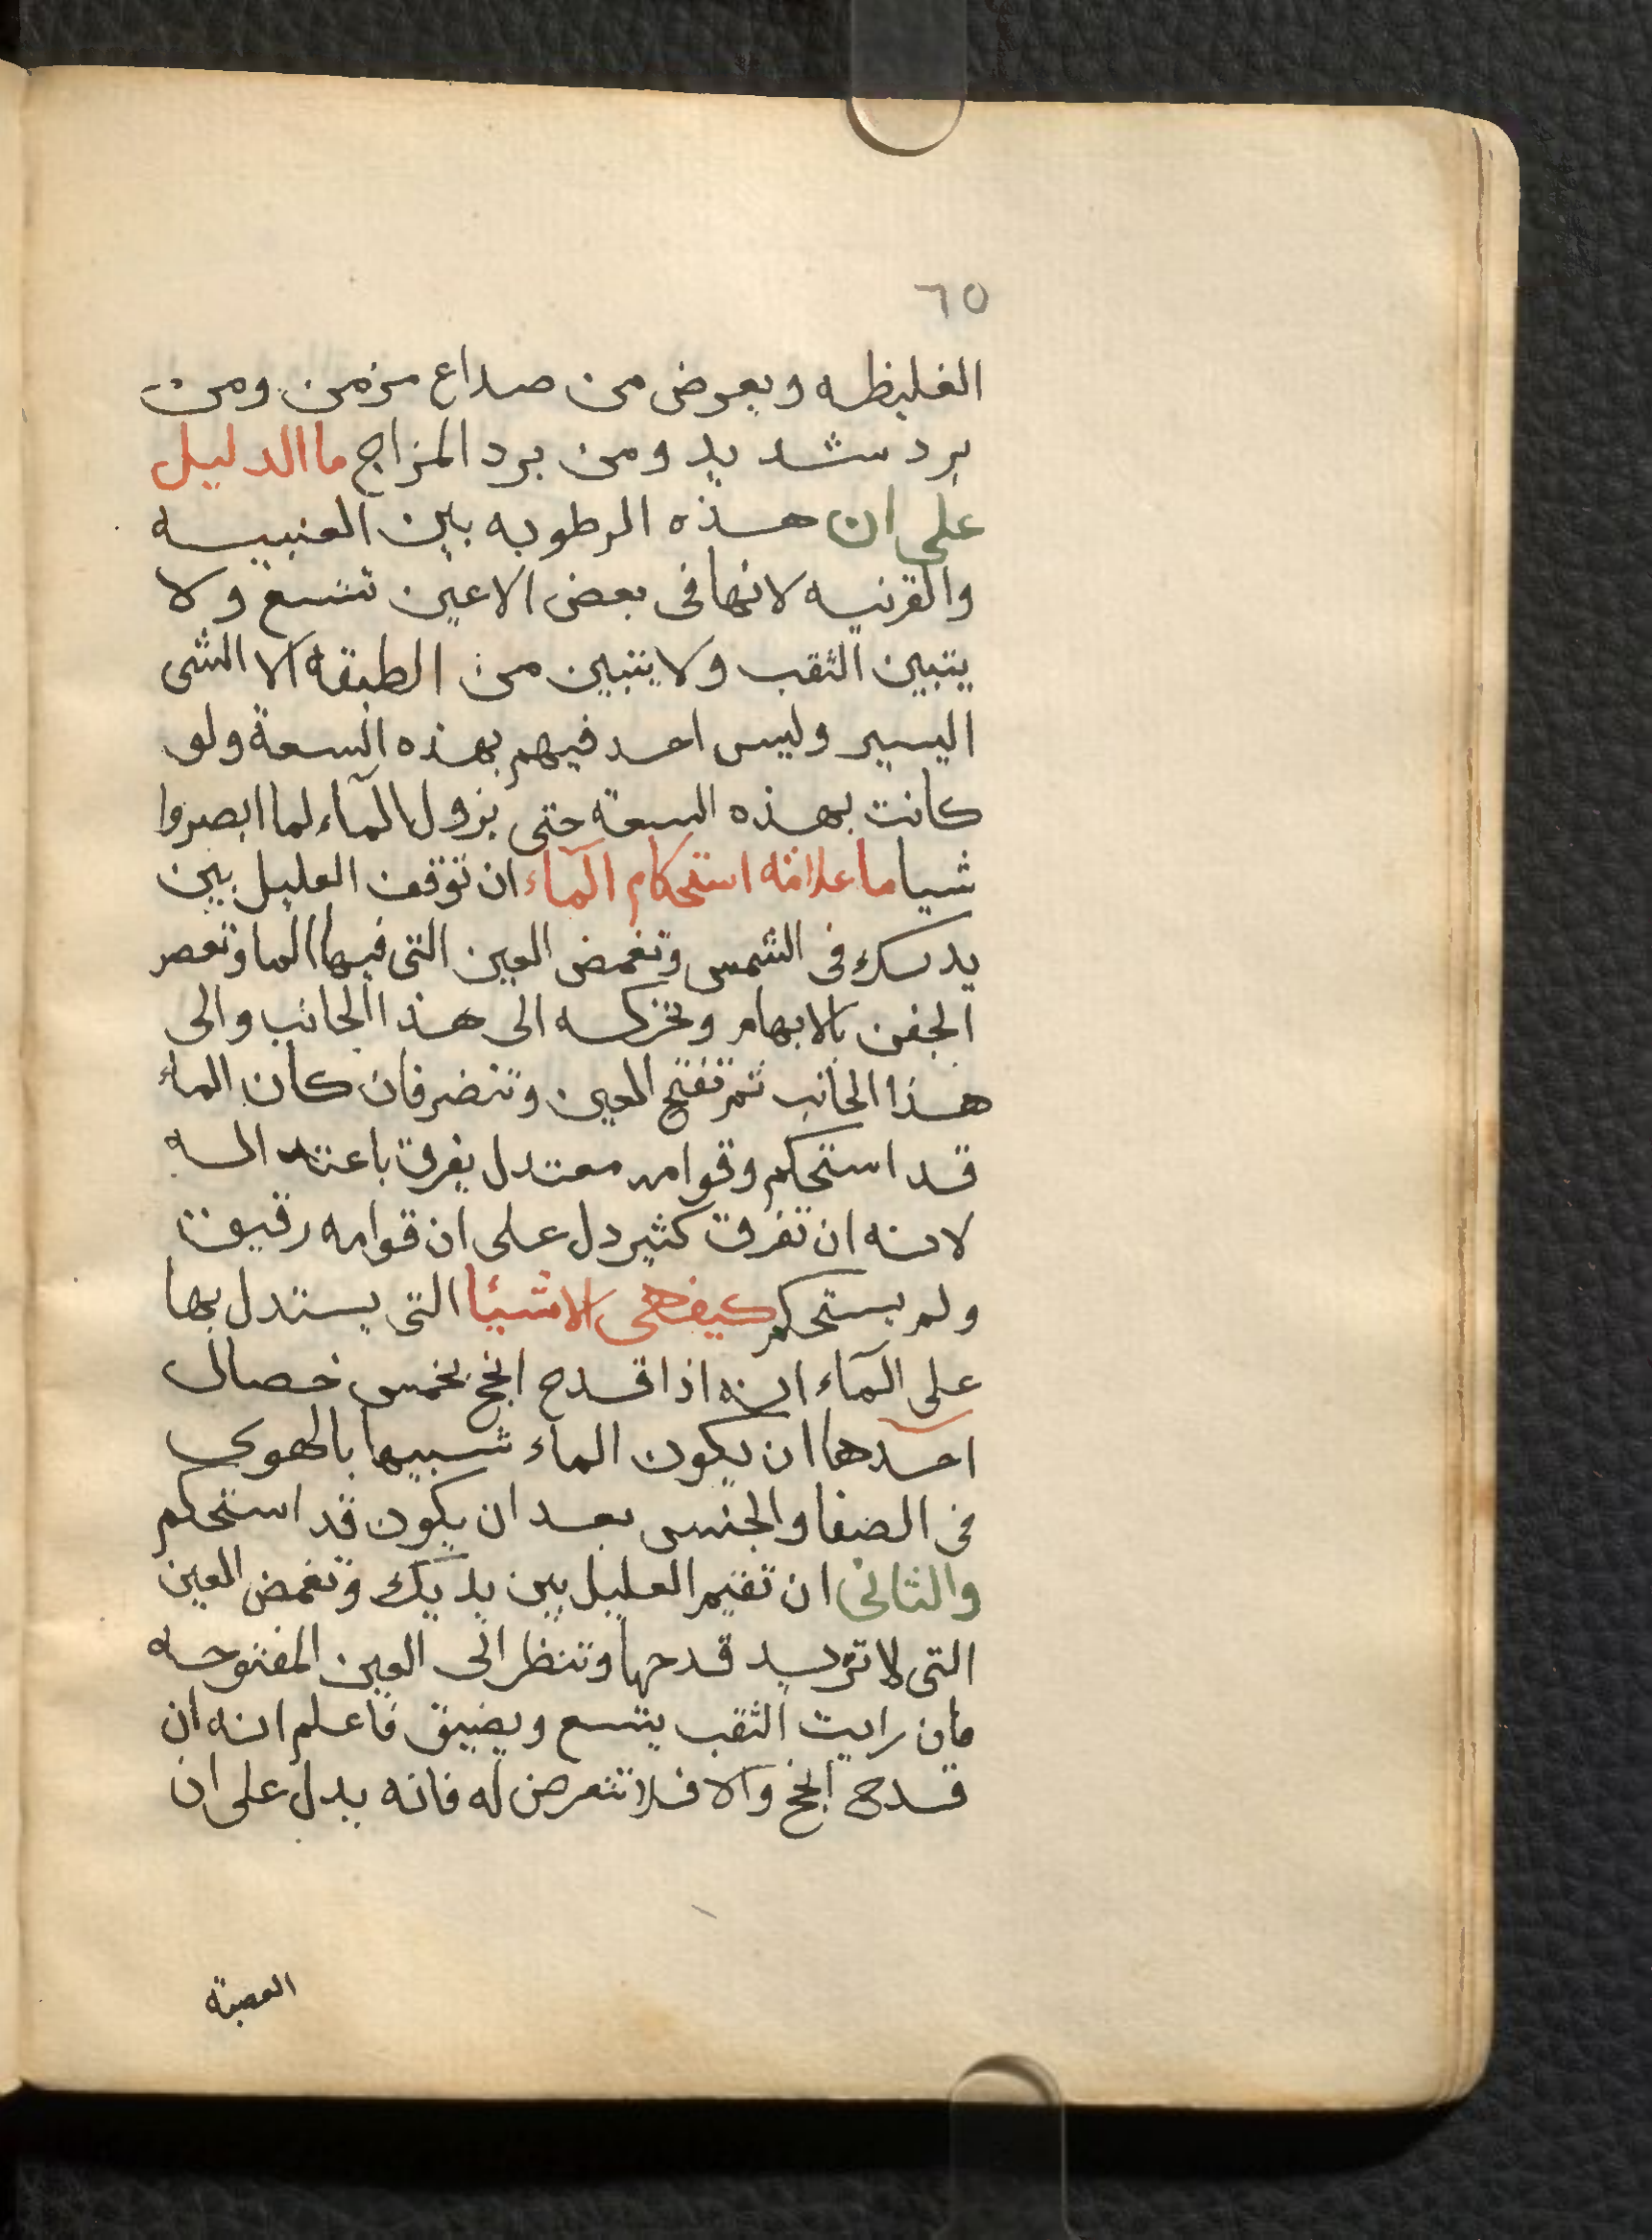 ٦٥
الغليظه ويعرض من صداع مزمن ومن
برد شديد ومن برد المزاج ما الدليل
على ان هذه الرطوبه بين العنبيه
والقرنيه لانها فى بعض الاعين تتسع ولا
يتبين الثقب ولا يتبين من الطبقه الا الشى
اليسير وليس احد فيهم بهذه السعة ولو
كانت بهذه السعة حتى يزول المآء لما ابصروا
شيا ما علامه استحكام المآء ان توقف العليل بين
يديك فى الشمس وتغمض العين التى فيها الما وتعصر
الجفن بالابهام وتحركه الى هذا الجانب والى
هذا الجانب ثم تفتح العين وتنضر فان كان الماء
قد استحكم وقوامه معتدل يفرق باعتداله
لانه ان تفرق كثير دل على ان قوامه رقيق
ولم يستحكم كيف هى الاشيئا التى يستدل بها
على المآء انه اذا قدح انجح بخمس خصال
احدها ان يكون الماء شبيها بالهوى
فى الصفا والجنس بعد ان يكون قد استحكم
والثانى ان تقيم العليل بين يديك وتغمض العين
التى لا تريد قدحها وتنظر الى العين المفتوحه
فان رايت الثقب يتسع ويضيق فاعلم انه ان
قدح انجح والا فلا تتعرض له فانه يدل على ان
العصبة